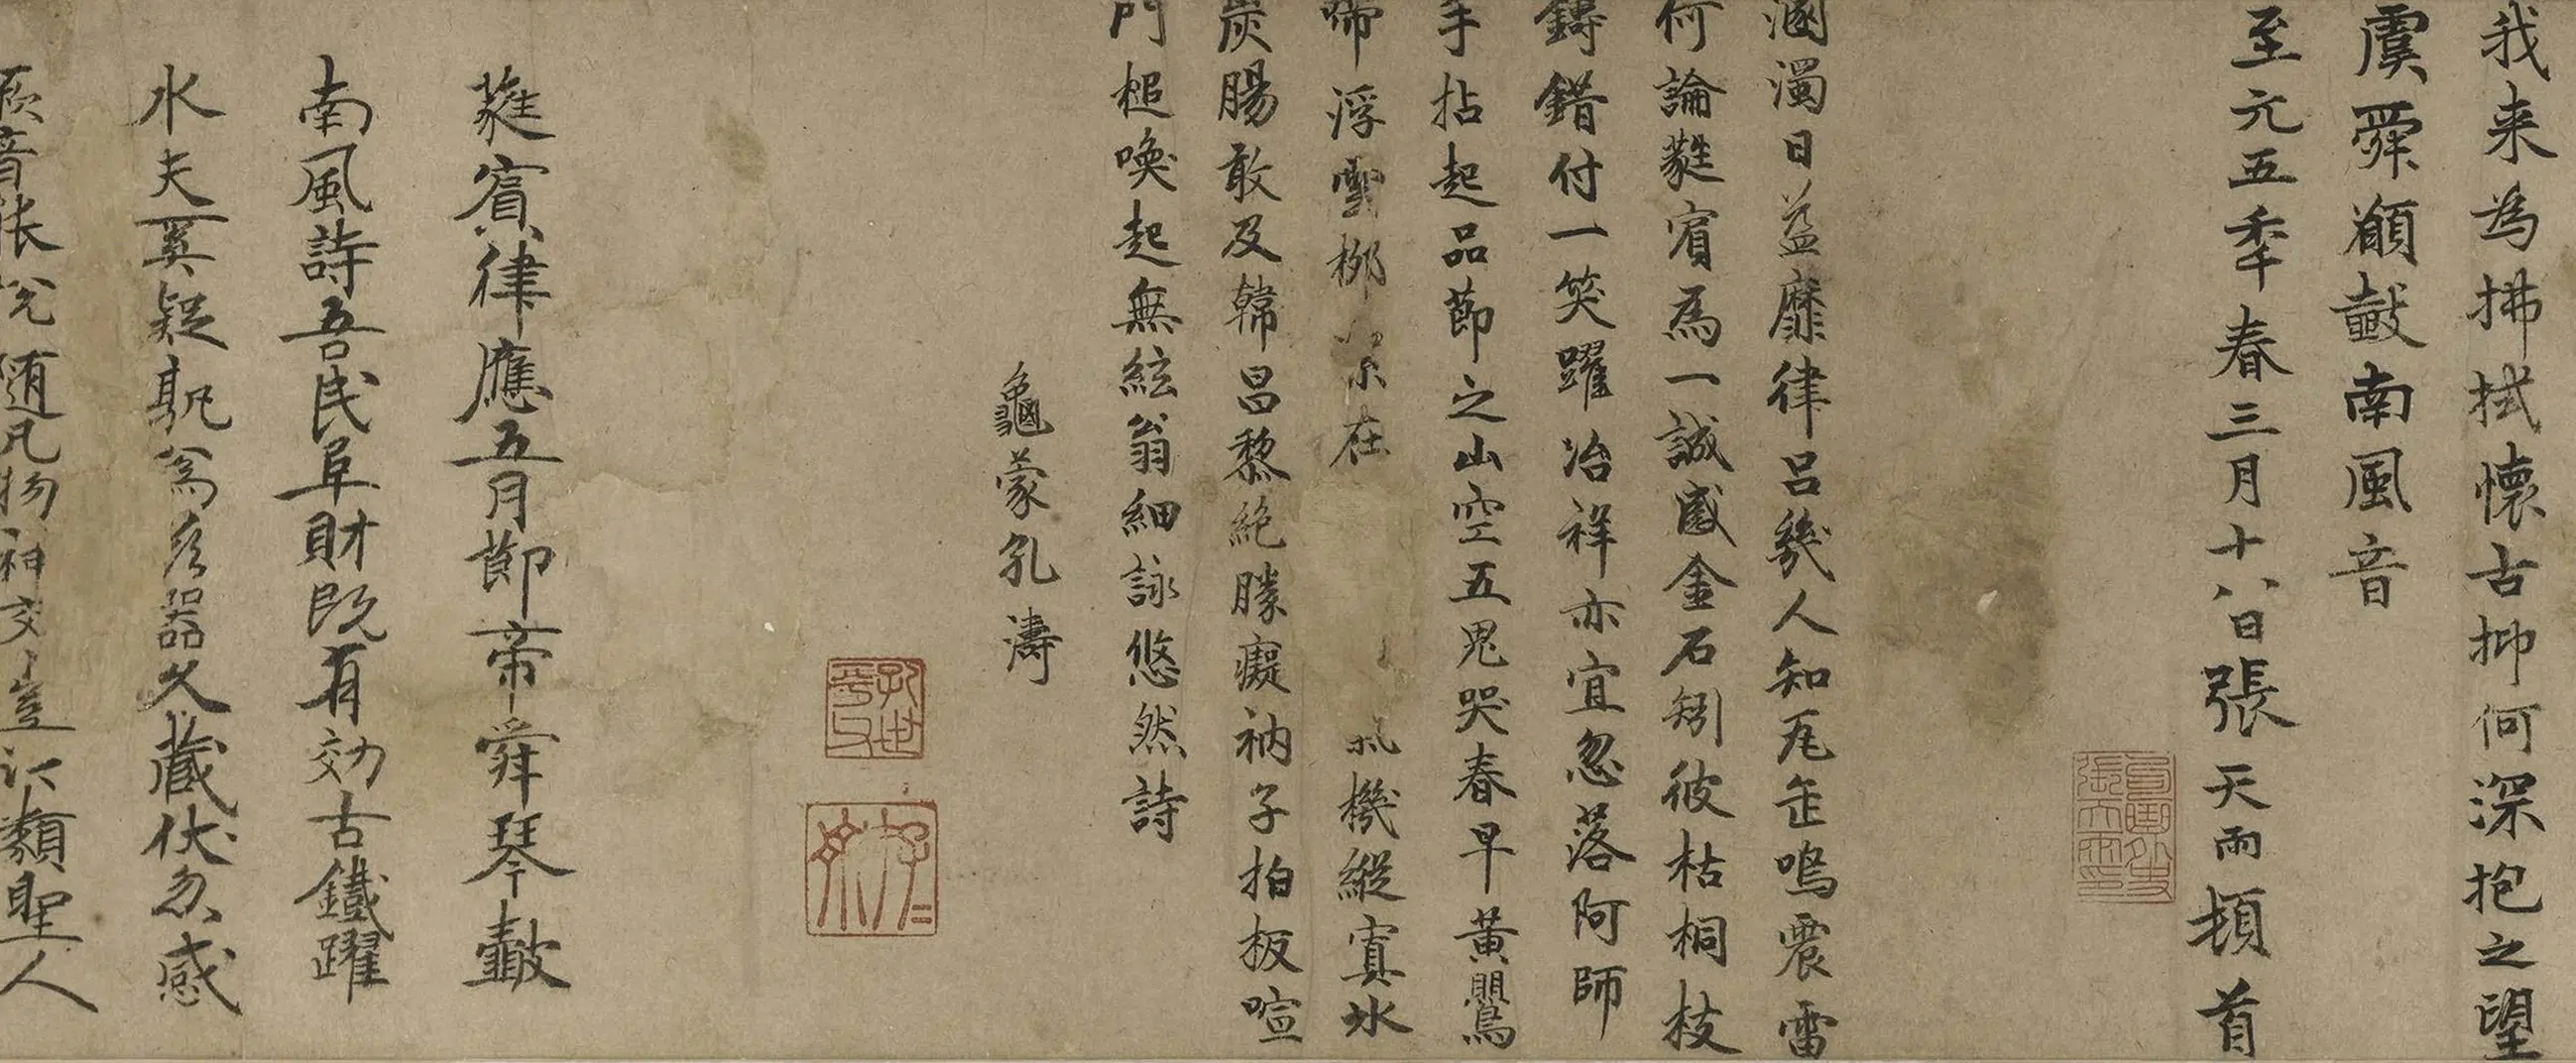 我来為拂拭懷古抑何深抱之望
虞舜願鼓南風音
至元五季春三月十八日張天雨頓首
濁日益靡律呂幾人知瓦缶鳴震雷
何論蕤賓為一誠感金石矧彼枯桐枝
鑄錯付一笑躍冶祥亦宜忽落阿師
手拈起品節之山空五鬼哭春早黃鸎
啼浮雲柳 在 機縱寘氷
炭腸敢及韓昌黎絶勝癡衲子拍板喧
門槌喚起無絃翁細詠悠然詩
龜蒙孔濤
蕤賓律應五月節帝舜琴鼓
南風詩吾民阜財既有効古鐵躍
水夫奚疑 器久藏伏忽感
音張 隨凡物神交豈 類聖人